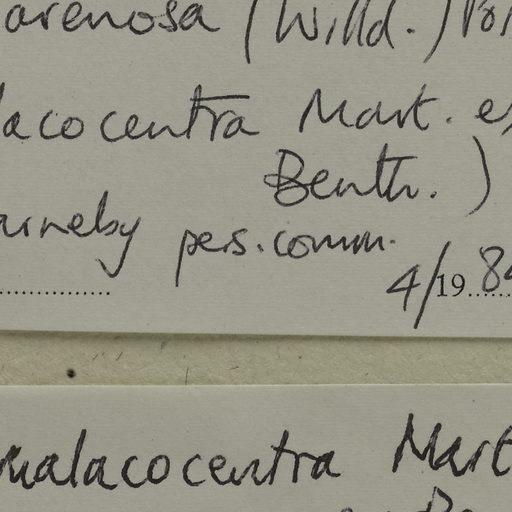 arenosa (Willd.) Poi
lacocentra Mart. ex
Benth. )
arneby pers. comm.
4/1984
malacocentra Mart